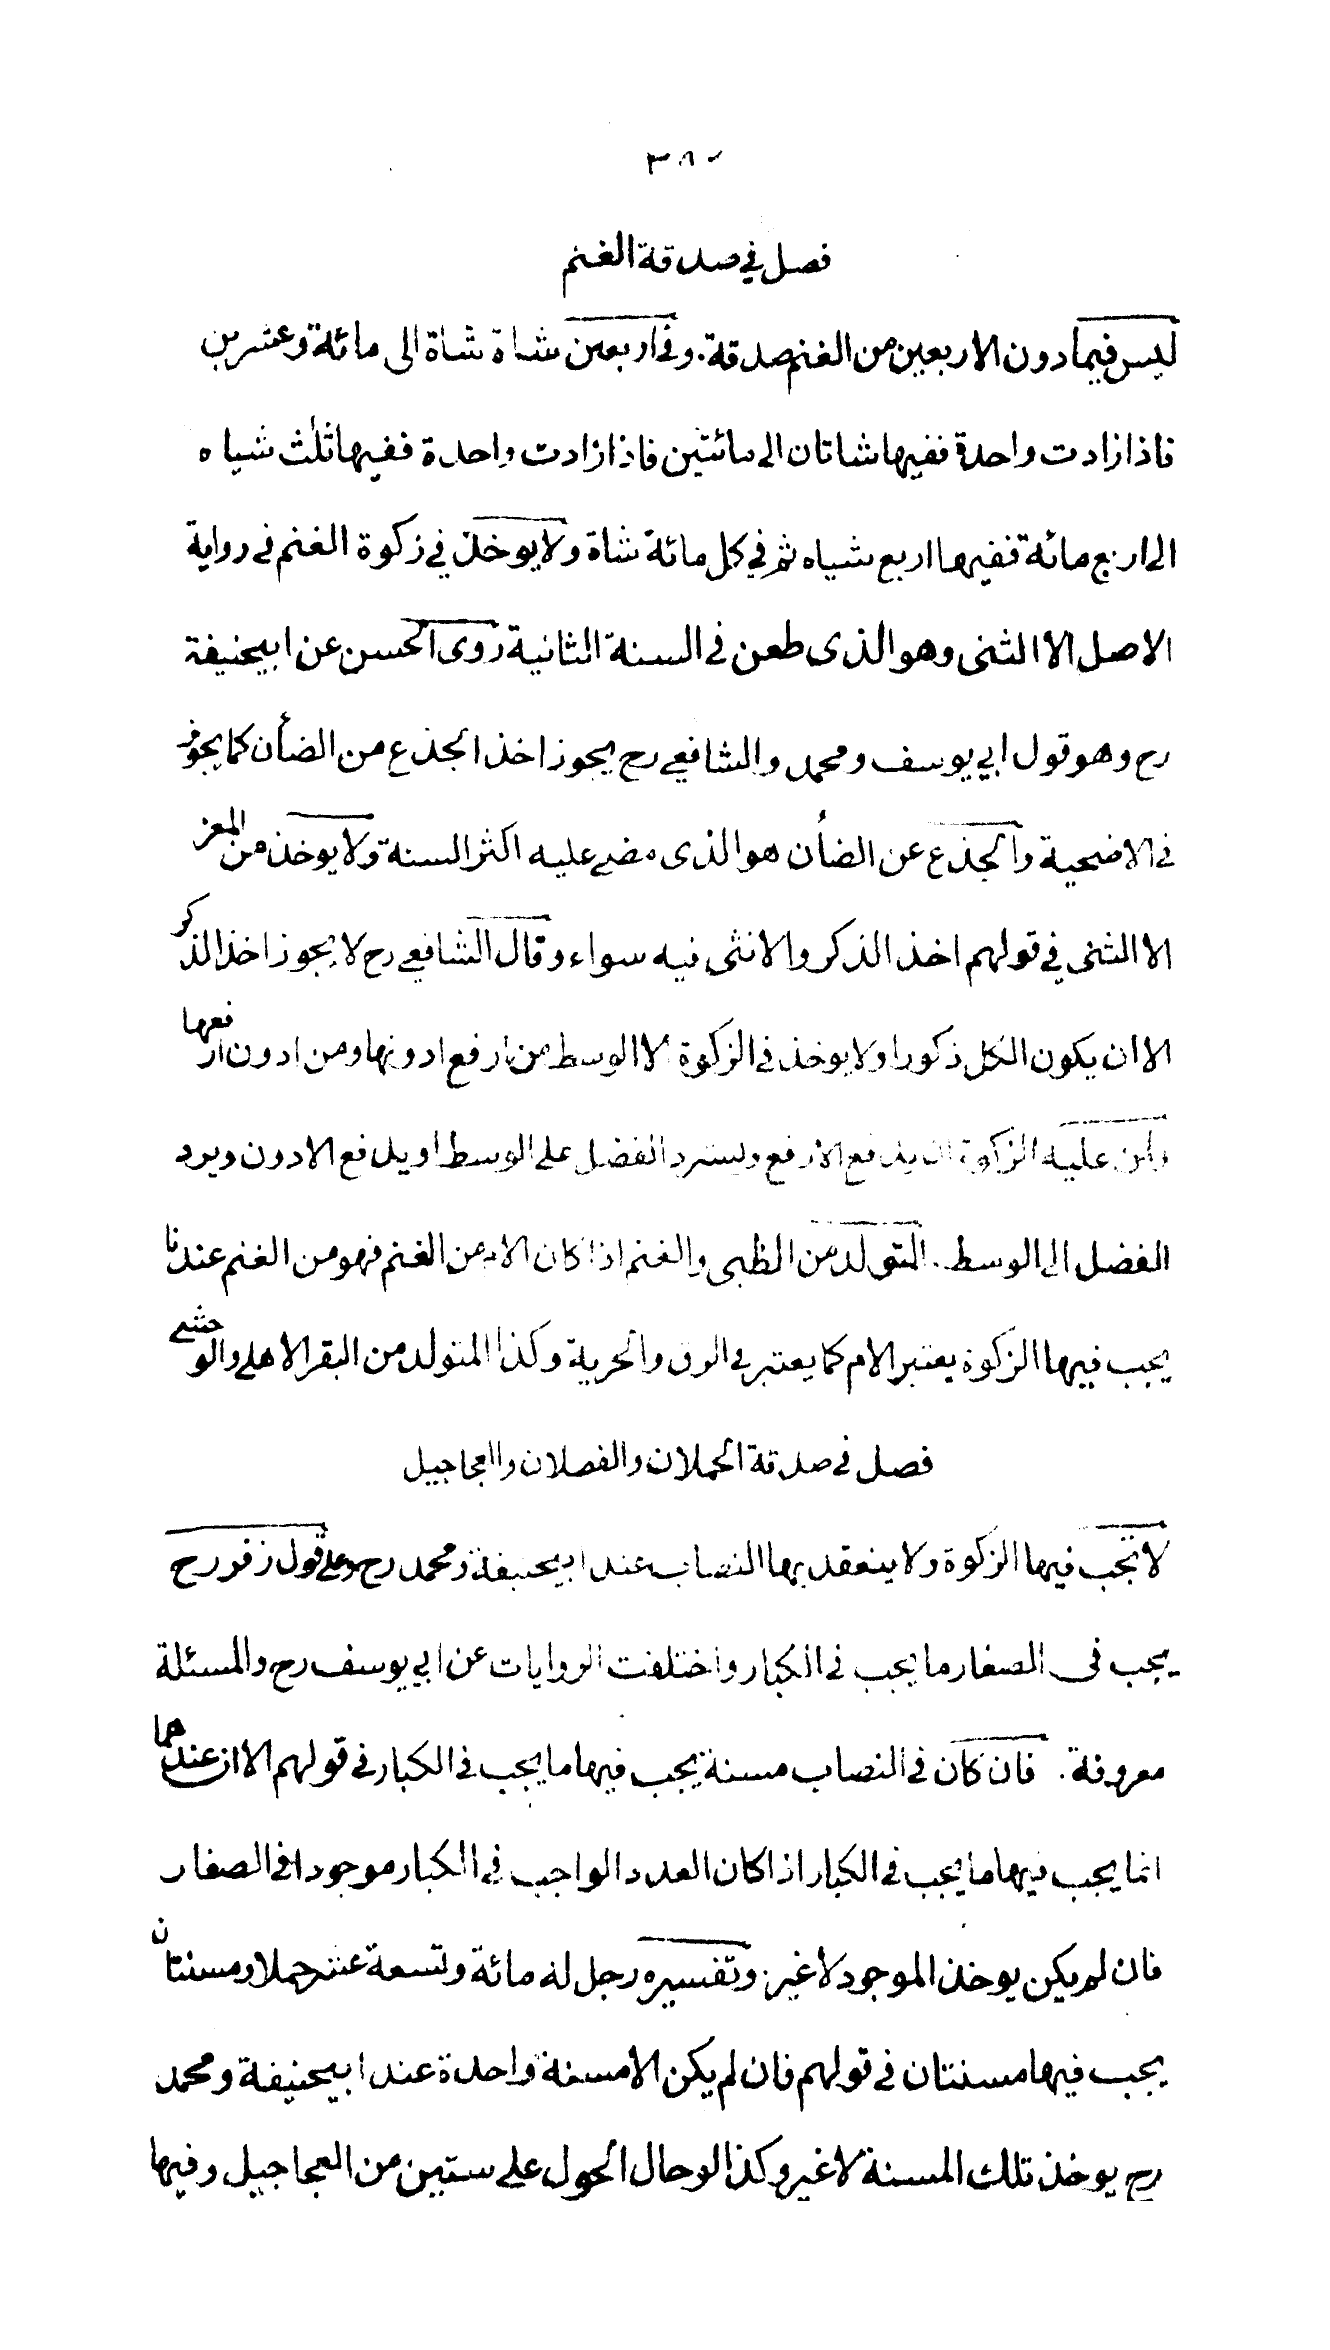 ٣٨٠
فصل في صدقة الغنم
ليس فيما دون الاربعين من الغنم صدقة. وفي اربعين شاة شاة الى مائة وعشرين
فاذا زادت واحدة ففيها شاتان الى مائتين فاذا زادت واحدة ففيها ثلث شياه
الى اربع مائة ففيها اربع شياه ثم في كل مائة شاة ولا يوخذ في زكوة الغنم في رواية
الاصل الا الثنى وهو الذى طعن في السنة الثانية روى الحسن عن ابيحنيفة
رح وهو قول ابي يوسف ومحمد والشافعي رح يجوز اخذ الجذع من الضأن كما يجوز
في الاضحية والجذع عن الضأن هو الذى مضى عليه اكثر السنة ولا يوخذ من المعز
الا الثنى في قولهم اخذ الذكر والانثى فيه سواء وقال الشافعي رح لا يجوز اخذ الذكر
الا ان يكون الكل ذكورا ولا يوخذ في الزكوة الا الوسط من ارفع ادونها ومن ادون ارفعها
ولمن عليه الزكوة ان يدفع الارفع ويسترد الفضل على الوسط او يدفع الادون ويرد
الفضل الى الوسط. المتولد من الظبى والغنم اذا كان الام من الغنم فهو من الغنم عندنا
يجب فيها الزكوة يعتبر الام كما يعتبر في الرق والحرية وكذا المتولد من البقر الاهلى والوحشي
فصل في صدقة الحملان والفصلان والعجاجيل
لا تجب فيها الزكوة ولا ينعقد بها النصاب عند ابيحنيفة ومحمد رح وعلى قول زفر رح
يجب في الصغار ما يجب في الكبار واختلفت الروايات عن ابي يوسف رح والمسئلة
معروفة. فان كان في النصاب مسنة يجب فيها ما يجب في الكبار في قولهم الا ان عندهما
انما يجب فيها ما يجب في الكبار اذا كان العدد الواجب في الكبار موجودا في الصغار
فان لم يكن يوخذ الموجود لا غير وتفسيره رجل له مائة وتسعة عشر حملا ومسنتان
يجب فيها مسنتان في قولهم فان لم يكن الا مسنة واحدة عند ابيحنيفة ومحمد
رح يوخذ تلك المسنة لا غير وكذا لو حال الحول على ستين من العجاجيل وفيها